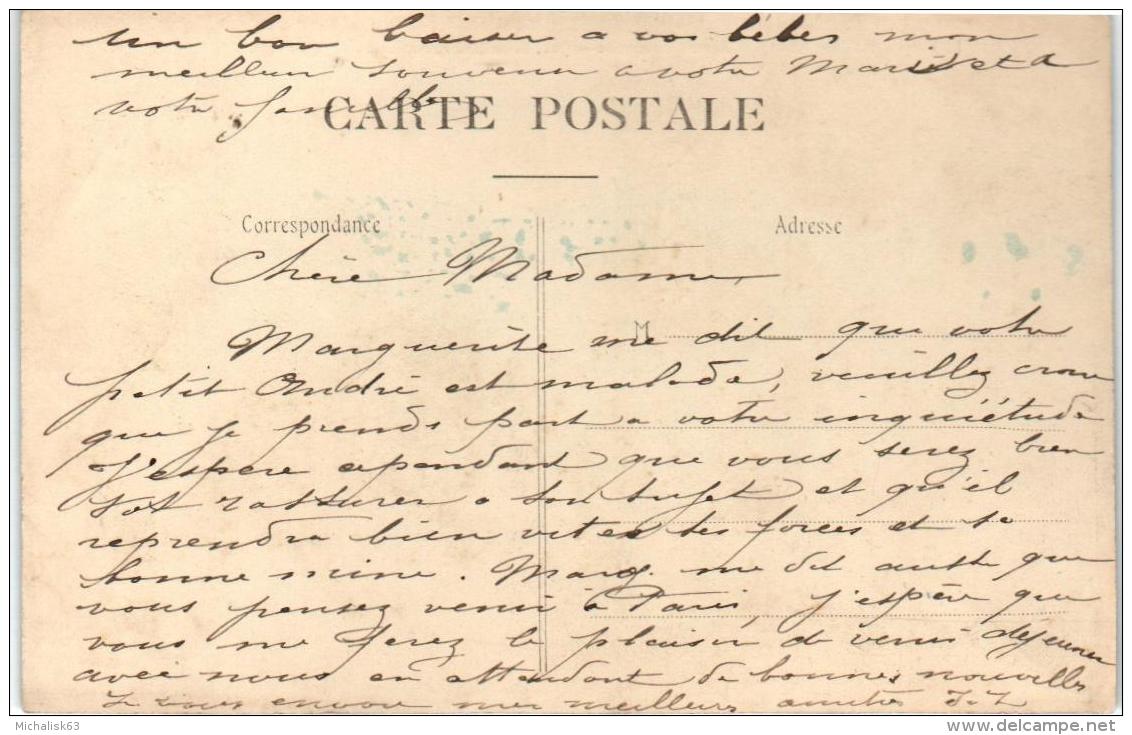 un bon baiser a vos bébés mon
meilleur souvenir a votre Mari et a
votre famille
CARTE POSTALE
Correspondance
Adresse
Chère Madame
M
Marguerite me dit que votre
petit André est malade, veuillez croire
que je prends part a votre inquiétude
J'espere cependant que vous serez bien
tot rassurer a son sujet et qu'il
reprendra bien vite ses forces et sa
bonne mine. Marg. me dit aussi que
vous pensez venir à Paris, j'espère que
vous me ferez le plaisir de venir déjeuner
avec nous en attendant de bonnes nouvelles
Je vous envoie mes meilleurs amitiés J. L
Michalisk63
delcampe.net